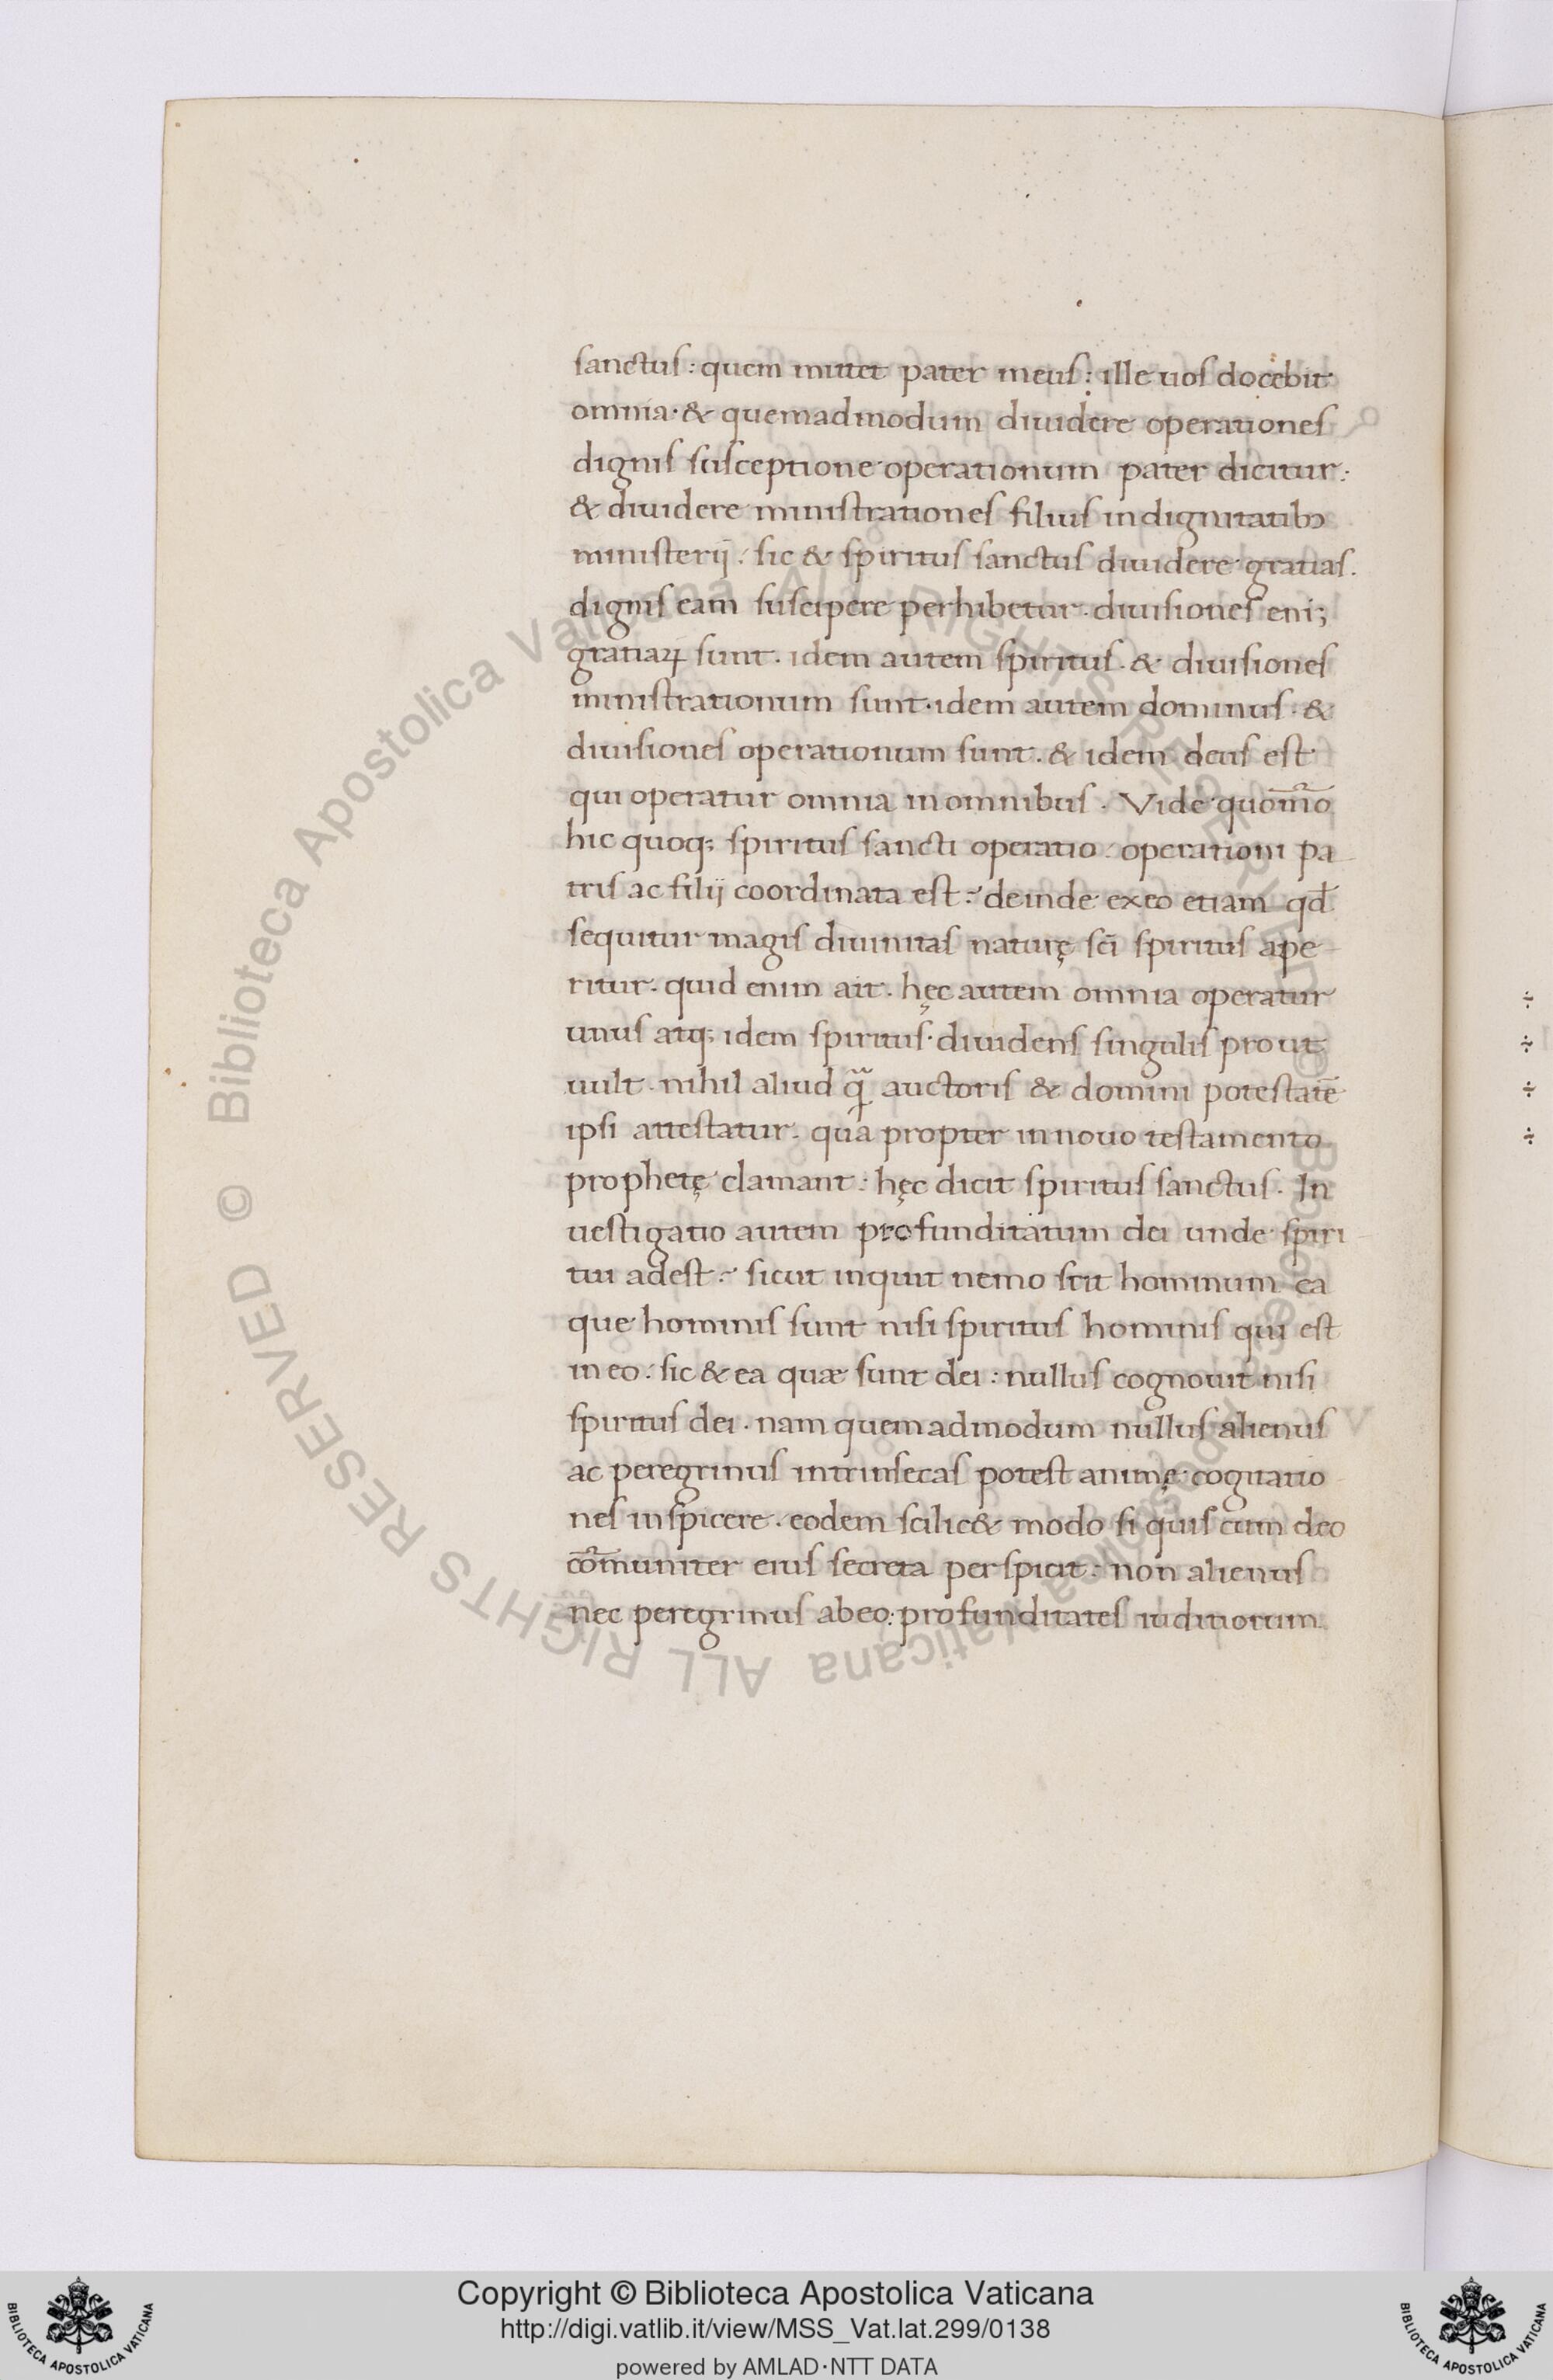 sanctus: quem mittet pater meus: ille uos docebit
omnia. & quemadmodum diuidere operationes
dignis susceptione operationum pater dicitur.
& diuidere ministrationes filius in dignitatibꝫ
ministerij. sic & spiritus sanctus diuidere gratias.
dignis eam suscipere perhibetur. diuisiones eni;
gratiaꝝ sunt. idem autem spiritus. & diuisiones
ministrationum sunt. idem autem dominus. &
diuisiones operationum sunt. & idem deus est
qui operatur omnia in omnibus. Vide quom̃o
hic quoq; spiritus sancti operatio. operationi pa
tris ac filij coordinata est. deinde ex eo etiam qd̃
sequitur magis diuinitas naturę sc̃i spiritus ape
ritur. quid enim ait. hęc autem omnia operatur
unus atq; idem spiritus. diuidens singulis prout
uult. nihil aliud q̃ auctoris & domini potestatē
ipsi attestatur. qua propter in nouo testamento
prophetę clamant: hęc dicit spiritus sanctus. In
uestigatio autem profunditatum dei unde spiri
tui adest. sicut inquit nemo scit hominum ea
que hominis sunt nisi spiritus hominis qui est
in eo. sic & ea quæ sunt dei: nullus cognouit nisi
spiritus dei. nam quemadmodum nullus alienus
ac peregrinus intrinsecas potest animę cogitatio
nes inspicere. eodem scilic& modo si quis cum deo
com̃uniter eius secreta perspicit: non alienus
nec peregrinus ab eo: profunditates iuditiorum
÷
÷
÷
÷
© Biblioteca Apostolica Vaticana ALL RIGHTS RESERVED © Biblioteca Apostolica Vaticana ALL RIGHTS RESERVED
Copyright © Biblioteca Apostolica Vaticana
http://digi.vatlib.it/view/MSS_Vat.lat.299/0138
powered by AMLAD·NTT DATA
BIBLIOTECA APOSTOLICA VATICANA
BIBLIOTECA APOSTOLICA VATICANA